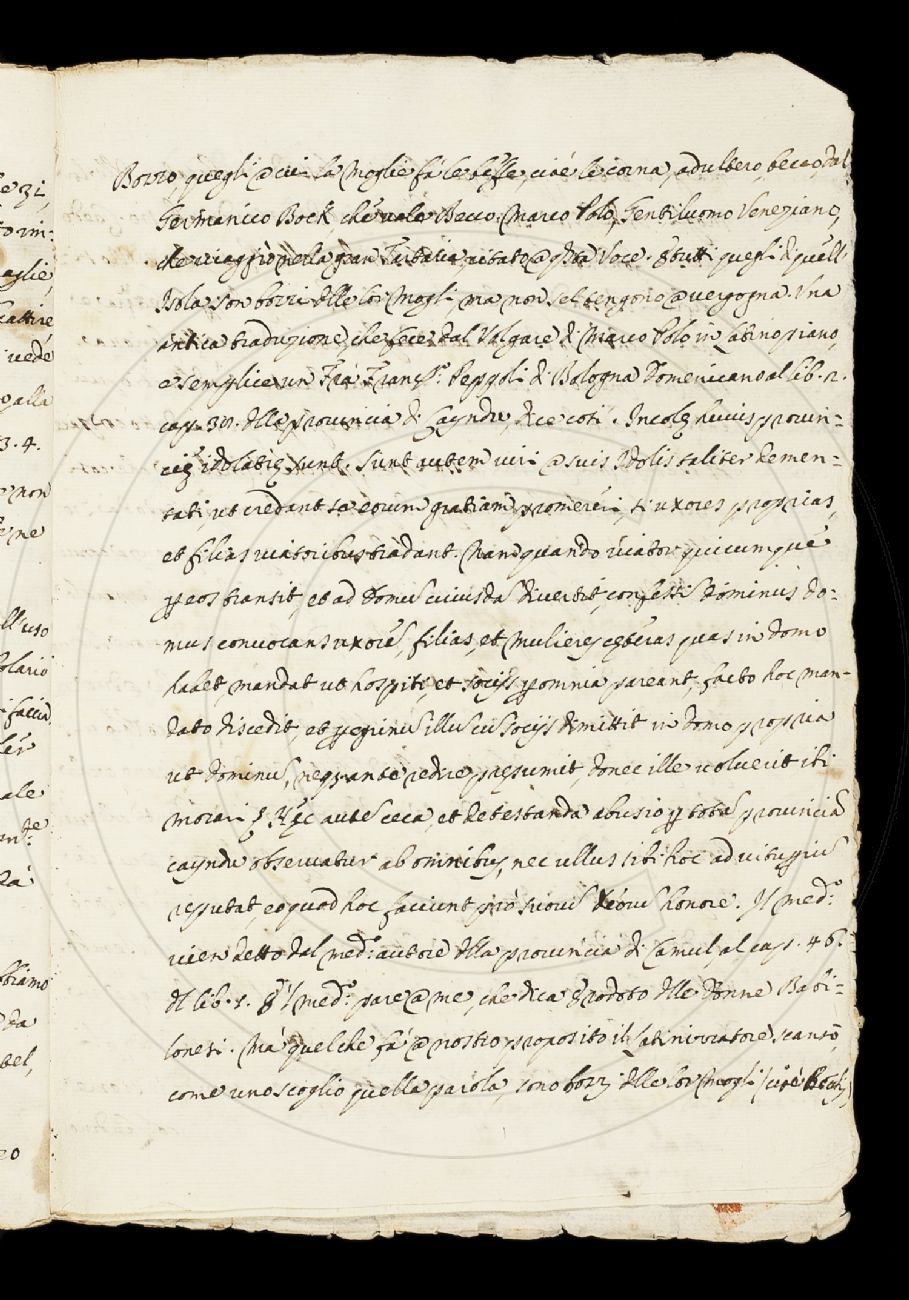 Bozzo, quegli @ cui la Moglie fà le beffe, cioè le corna, adultero, becco, dal
Germanico Bock, che vale Becco. Marco Polo, Gentiluomo Veneziano,
che viaggiò nella gran Tartaria, citato @ qsta Voce. E tutti quegli di quell'
Isola son bozzi dlle lor Mogli, ma non sel tengono @ vergogna. Una
antica traduzione, che fece dal Volgare di Marco Polo in latino piano,
e semplice un Frà Franco. Peppoli di Bologna Domenicano al lib. 2.
cap. 38. dlla Provincia di Cayndu, dice così. Incolę huius provin=
cię idolatrę sunt. Sunt autem viri @ suis Idolis taliter demen=
tati, ut credant se eorum gratiam promereri, si uxores proprias,
et filias viatoribus tradant. Nam quando viator quicumque
p eos transit, et ad domũ cuiusdã divertit, confestĩ dominus do=
mus convocans uxorẽ, filias, et mulieres cęteras quas in domo
habet, mandat ut hospiti, et socijs p omnia pareant, facto hoc man=
dato discedit, et pegrinũ illũ cũ socijs dimittit in domo propria
ut dominũ, neq; ante redire pręsumit, donec ille voluerit ibi
morari. Hęc autẽ ceca, et detestanda abusio p totã provinciã
cayndu observatur ab omnibus, nec ullus sibi hoc ad vitupiũ
reputat, eo quod hoc faciunt prò suorũ Deorũ honore. Il medo.
vien detto dal medo. autore dlla provincia di Camul, al cap. 46.
dl lib. 1. E 'l medo. pare @ me, che dica Erodoto dlle Donne Babi=
lonesi. Mà quel che fà @ nostro proposito il latinizzatore scansò,
come uno scoglio quella parola, sono bozzi dlle lor Mogli (cioè Becchi)